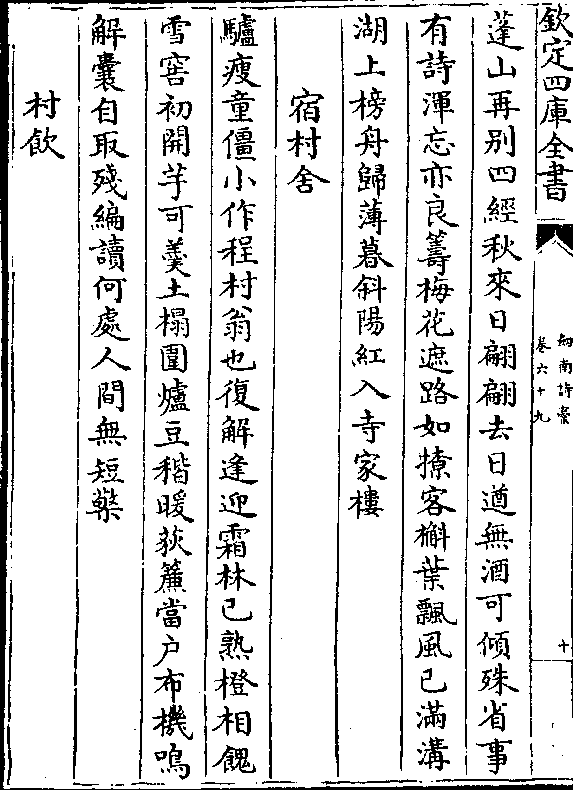 欽定四庫全書
劍南詩稾
卷六十九
十
蓬山再别四經秋來日翩翩去日遒無酒可傾殊省事
有詩渾忘亦良籌梅花遮路如撩客槲葉飄風已滿溝
湖上榜舟歸薄暮斜陽紅入寺家樓
宿村舍
驢瘦童僵小作程村翁也復解逢迎霜林已熟橙相餽
雪窖初開芋可羹土榻圍爐豆稭暖荻簾當户布機鳴
解囊自取殘編讀何處人間無短檠
村飲